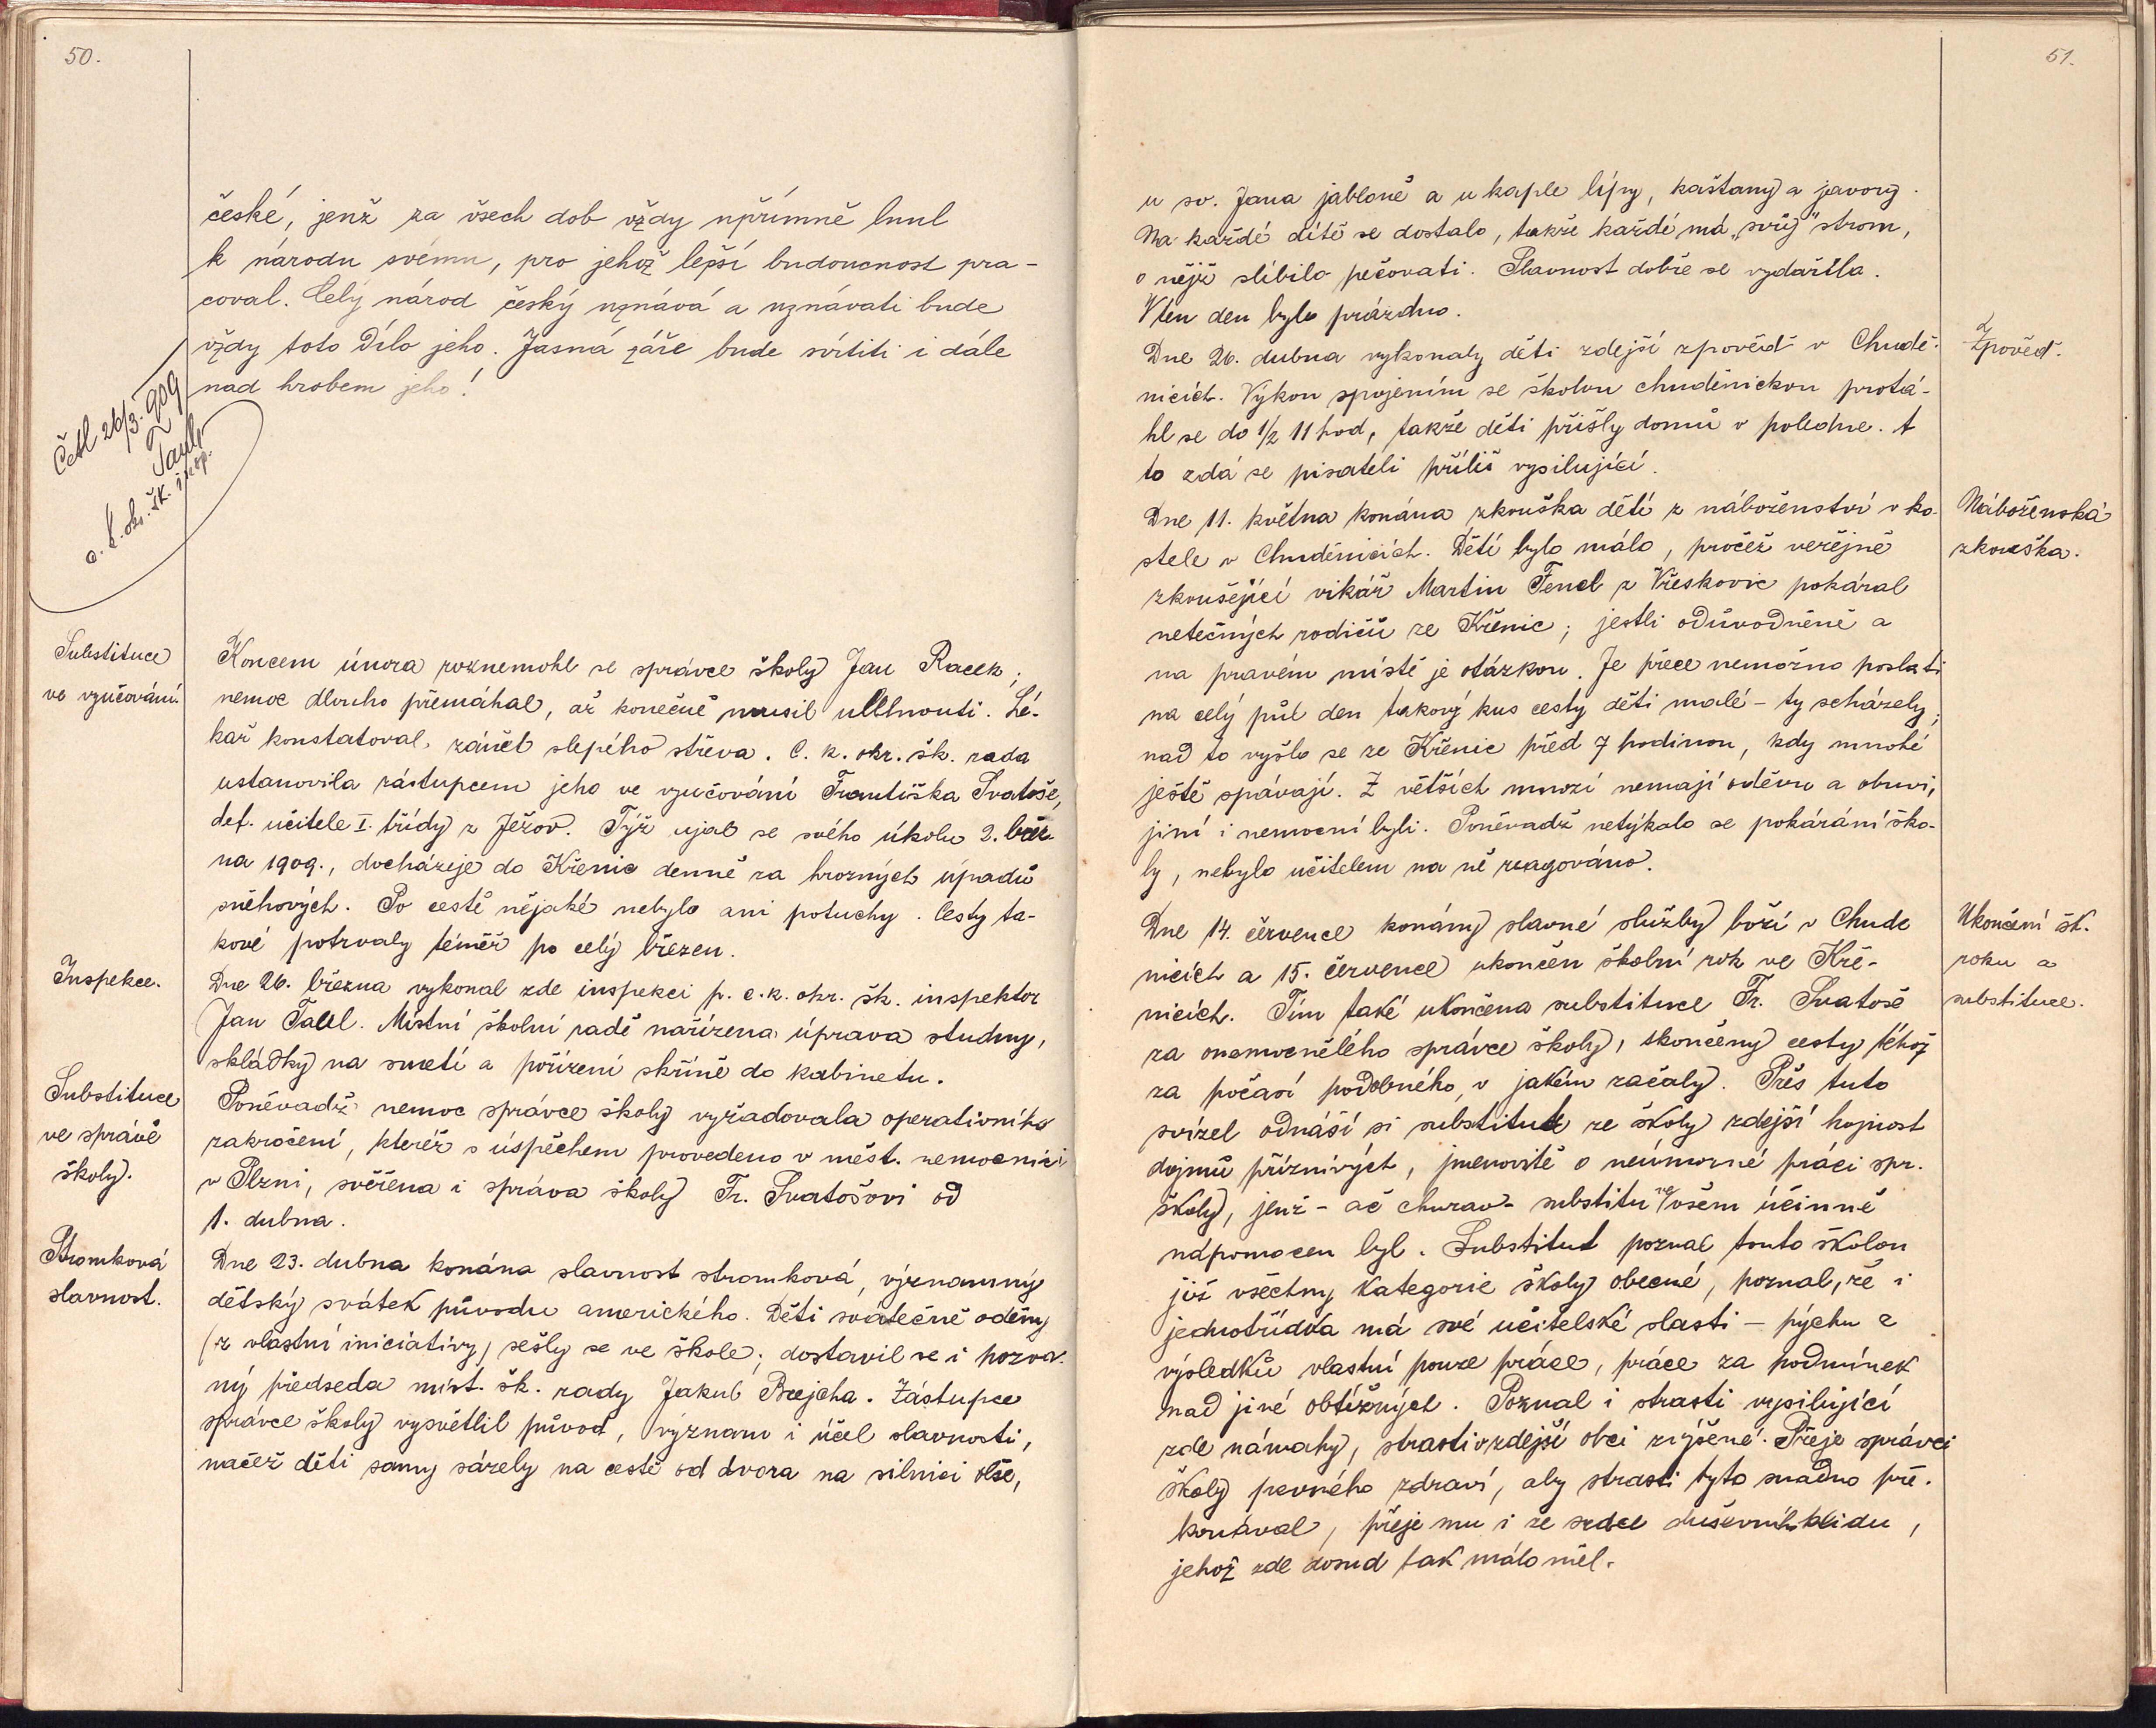 50.
české, jenž za všech dob vždy upřímně lnul
k národu svému, pro jehož lepší budoucnost pra-
coval. Celý národ český uznává a uznávati bude
vždy toto dílo jeho. Jasná záře bude svítiti i dále
nad hrobem jeho!
Četl 26/3. 909
Taul
c. k. okr. šk. insp.
Substituce
ve vyučování.
Koncem února roznemohl se správce školy Jan Racek;
nemoc dlouho přemáhal, až konečně musil ulehnouti. Lé-
kař konstatoval zánět slepého střeva. C. k. okr. šk. rada
ustanovila zástupcem jeho ve vyučování Františka Svatoše,
def. učitele I. třídy z Ježov. Týž ujal se svého úkolu 2. břez
na 1909., docházeje do Křenic denně za hrozných úpadů
sněhových. Po cestě nějaké nebylo ani potuchy. Cesty ta-
kové potrvaly téměř po celý březen.
Inspekce.
Dne 26. března vykonal zde inspekci p. c. k. okr. šk. inspektor
Jan Taul. Místní školní radě nařízena úprava studny,
skládky na smetí a pořízení skříně do kabinetu.
Substituce
ve správě
školy.
Poněvadž nemoc správce školy vyžadovala operativního
zakročení, kteréž s úspěchem provedeno v měst. nemocnici
v Plzni, svěřena i správa školy Fr. Svatošovi od
1. dubna.
Stromková
slavnost.
Dne 23. dubna konána slavnost stromková, významný
dětský svátek původu amerického. Děti svátečně oděny
(z vlastní iniciativy) sešly se ve škole; dostavil se i pozva-
ný předseda míst. šk. rady Jakub Brejcha. Zástupce
správce školy vysvětlil původ, význam i účel slavnosti,
načež děti samy sázely na cestě od dvora na silnici olše,
51.
u sv. Jana jabloně a u kaple lípy, kaštany a javory.
Na každé dítě se dostalo, takže každé má „svůj" strom,
o nějž slíbilo pečovati. Slavnost dobře se vydařila.
V ten den bylo prázdno.
Zpověď.
Dne 26. dubna vykonaly děti zdejší zpověď v Chudě-
nicích. Výkon spojením se školou chudenickou protá-
hl se do 1/2 11 hod, takže děti přišly domů v poledne. A
to zdá se pisateli příliš vysilující.
Náboženská
zkouška.
Dne 11. května konána zkouška dětí z náboženství v ko-
stele v Chuděnicích. Dětí bylo málo, pročež veřejně
zkoušející vikář Martin Fencl z Vřeskovic pokáral
netečných rodičů ze Křenic; jestli odůvodněně a
na pravém místě je otázkou. Je přece nemožno poslati
na celý půl den takový kus cesty děti malé – ty scházely;
nad to vyšlo se ze Křenic před 7 hodinou, kdy mnohé
ještě spávají. Z větších mnozí nemají oděvu a obuvi,
jiní i nemocní byli. Poněvadž netýkalo se pokárání ško-
ly, nebylo učitelem na ně reagováno.
Ukončení šk.
roku a
substituce.
Dne 14. července konány slavné služby boží v Chude
nicích a 15. července ukončen školní rok ve Kře-
nicích. Tím také ukončena substituce Fr. Svatoše
za onemocnělého správce školy, skončeny cesty téhož
za počasí podobného, v jakém začaly. Přes tuto
svízel odnáší si substitut ze školy zdejší hojnost
dojmů příznivých, jmenovitě o neúmorné práci spr.
školy, jenž – ač churav – substitu ve všem účinně
nápomocen byl. Substitut poznal touto školou
již všechny kategorie školy obecné, poznal, že i
jednotřídka má své učitelské slasti – pýchu z
výsledků vlastní pouze práce, práce za podmínek
nad jiné obtížných. Poznal i strasti vysilující
zde námahy, strasti v zdejší obci zvýšené. Přeje správci
školy pevného zdraví, aby strasti tyto snadno pře-
konával, přeje mu i ze srdce duševního klidu,
jehož zde dosud tak málo měl.